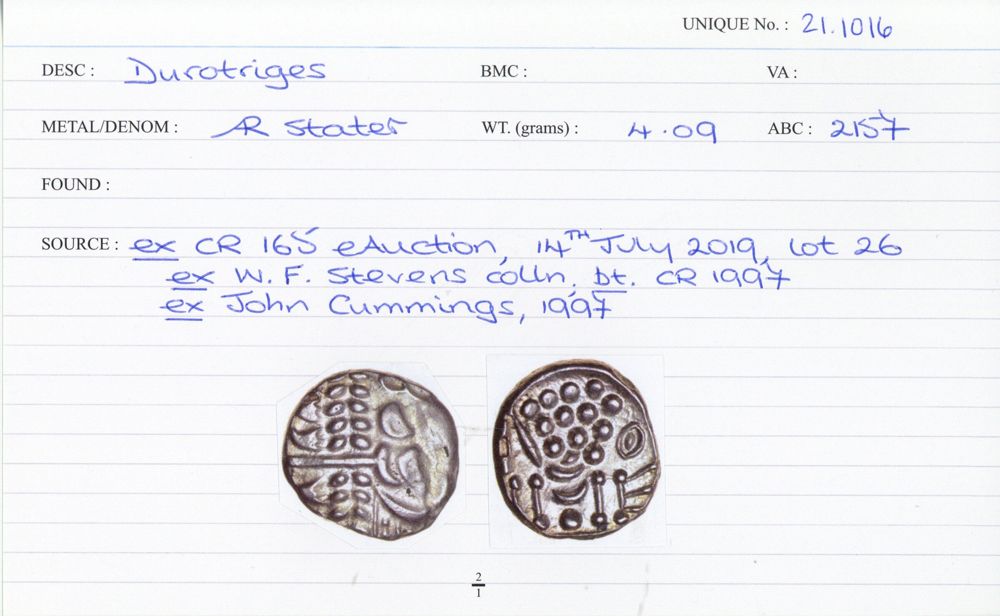 UNIQUE No. : 21.1016
DESC : Durotriges BMC : VA :
METAL/DENOM : AR Stater WT. (grams) : 4.09 ABC : 2157
FOUND :
SOURCE : ex CR 165 eAuction, 14TH July 2019, lot 26
ex W. F. Stevens colln, bt. CR 1997
ex John Cummings, 1997
2
1